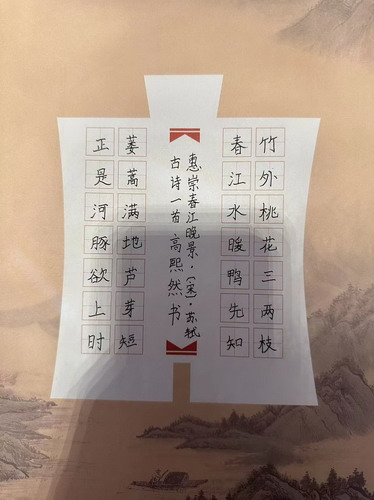 竹外桃花三两枝
春江水暖鸭先知
惠崇春江晚景·(宋)·苏轼
古诗一首高熙然书
蒌蒿满地芦芽短
正是河豚欲上时